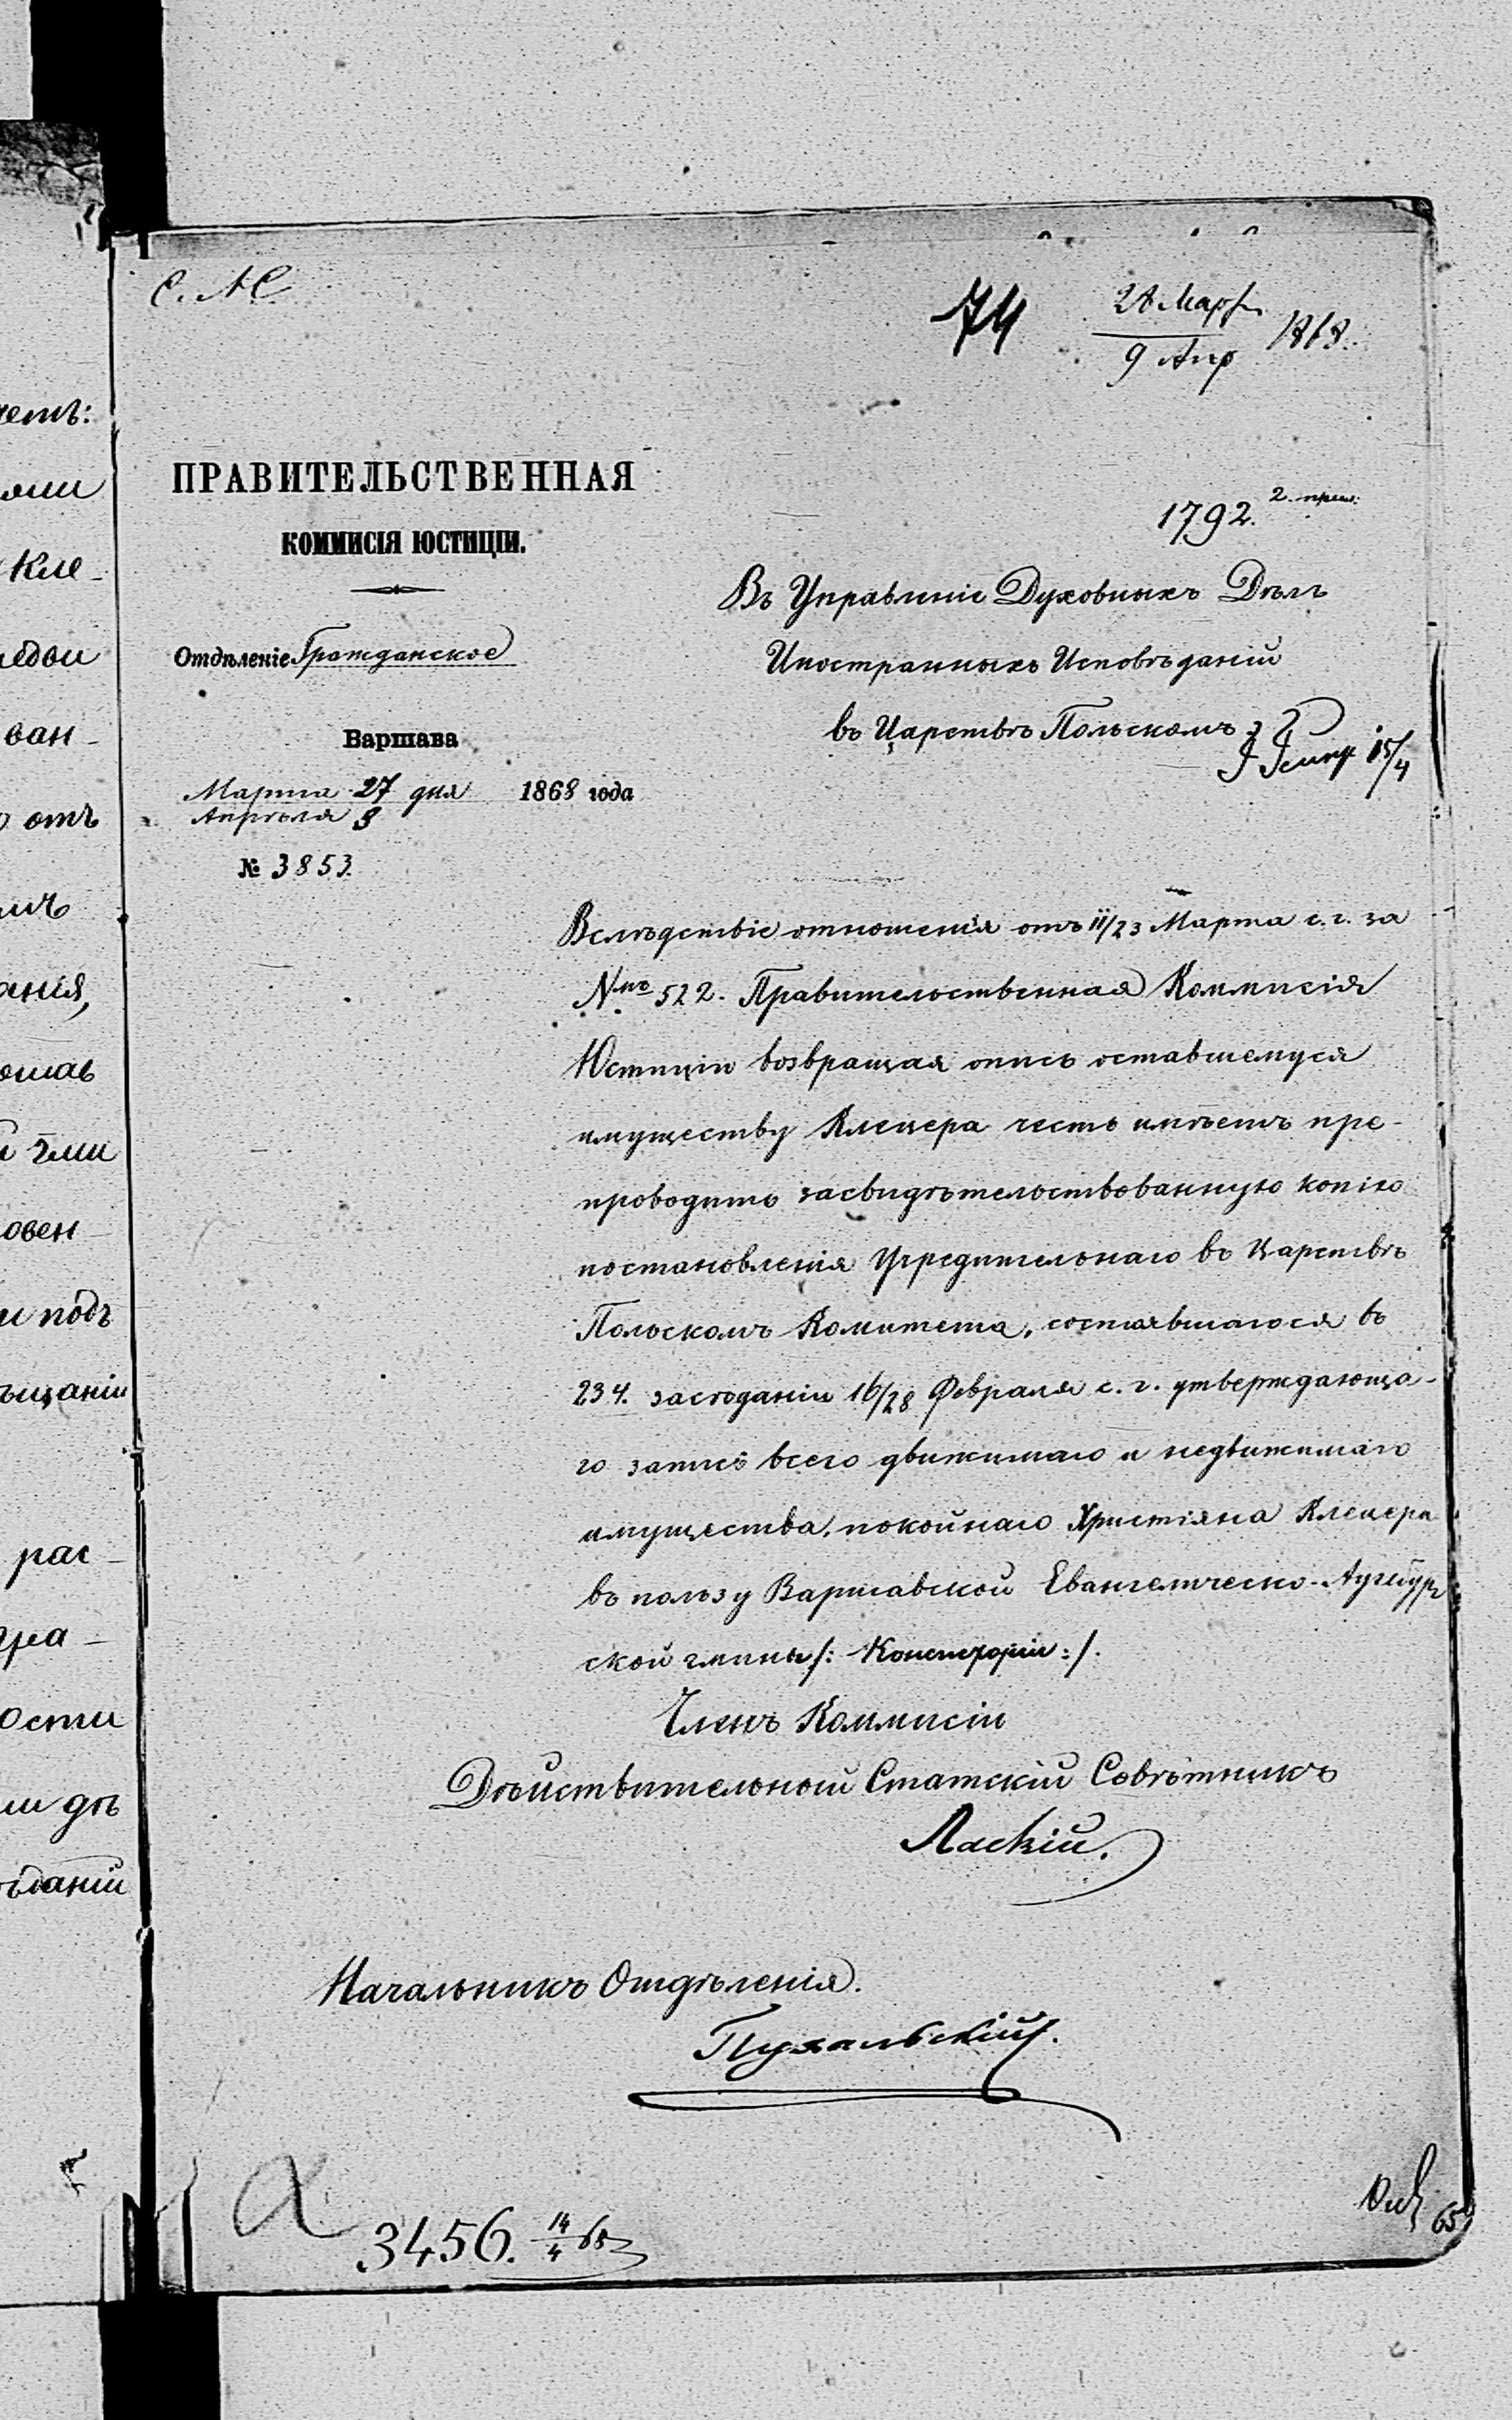 С. АС
74
28 Марта
9 Апр 1868.
ПРАВИТЕЛЬСТВЕННАЯ
КОММИСІЯ ЮСТИЦІИ.
1792. 2. прил:
Отдѣленіе Гражданское
Въ Управленіе Духовныхъ Дѣлъ
Иностранныхъ Исповѣданій
въ Царствѣ Польскомъ
15/4
Варшава
Марта 27 дня 1868 года
Апрѣля 8
№ 3853.
Вслѣдствіе отношенія отъ 11/23 Марта с. г. за
№ 522. Правительственная Коммисія
Юстиціи возвращая опись оставшемуся
имуществу Клецера честь имѣетъ пре-
проводить засвидѣтельствованную копію
постановленія Учредительнаго въ Царствѣ
Польскомъ Комитета, состоявшагося въ
234. засѣданіи 16/28 Февраля с. г. утверждающа-
го запись всего движимаго и недвижимаго
имущества, покойнаго Христіяна Клецера
въ пользу Варшавской Евангелическо-Аугсбург
ской гмины /: Консисторіи :/.
Членъ Коммисіи
Дѣйствительный Статскій Совѣтникъ
Ласкій.
Начальникъ Отдѣленія.
Пухальскій.
3456. 14/4 68
65
четъ:
ями
Кле-
ван-
отъ
анія,
овен
и подъ
ѣщаніи
рас-
гра-
ости
ѣданіи